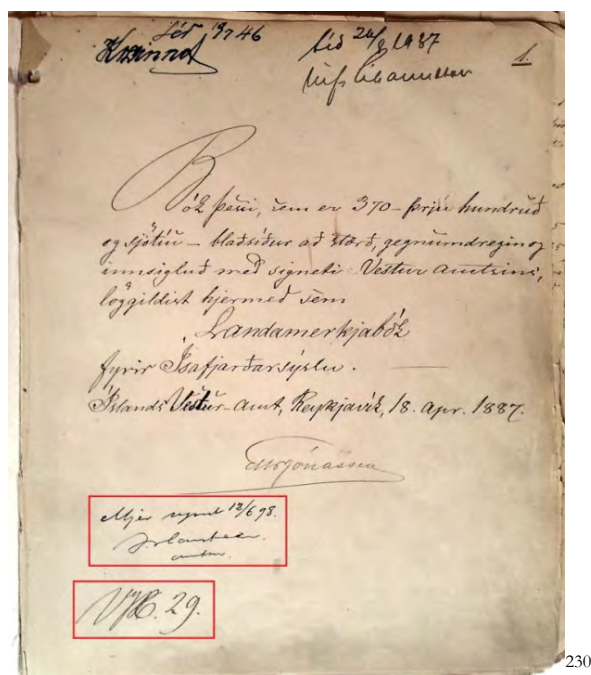 Séð 19/7 46
séð 24/8 1937
1.
Bók þessi, sem er 370 – þrjú hundruð
og sjötíu – blaðsíður að stærð, gegnumdregin og
innsigluð með signeti Vestur amtsins,
löggildist hjermeð sem
Landamerkjabók
fyrir Ísafjarðarsýslu.
Íslands Vestur-amt, Reykjavík, 18. apr. 1887.
Mjer sýnt 12/6 98.
29.
230